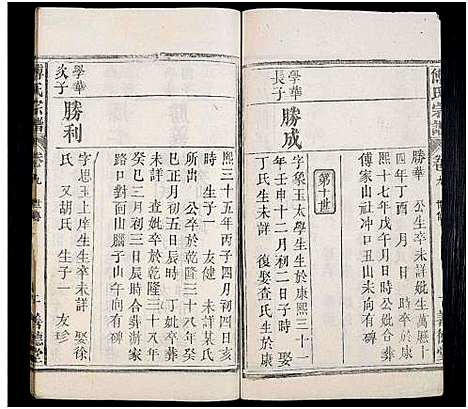 傅氏宗譜
卷九 世傳
善德堂
勝華 公生卒未詳妣生萬厯十
四年丁酉八月 日 時卒於康
熙十七年戊午月日時公妣合葬
傅家山社冲口丑山未向有碑
第十世
學華長子
勝成
字象玉太學生生於康熙三十一
年壬申十二月初二日子時 娶
丁氏生未詳 後娶查氏生於康
熙三十五年丙子四月初四日亥
時 生子一 友健 未詳某氏
所出 公卒於乾隆三十八年癸
巳正月初五日辰時 丁妣卒葬
未詳 查妣卒於乾隆三十八年
癸巳三月初三日辰時合葬家
路口對面山腦子山午向有碑
學華次子
勝利
字思玉上庠生生卒未詳 娶徐
氏 又胡氏 生子一 友珍
傅氏宗譜
卷九 世傳